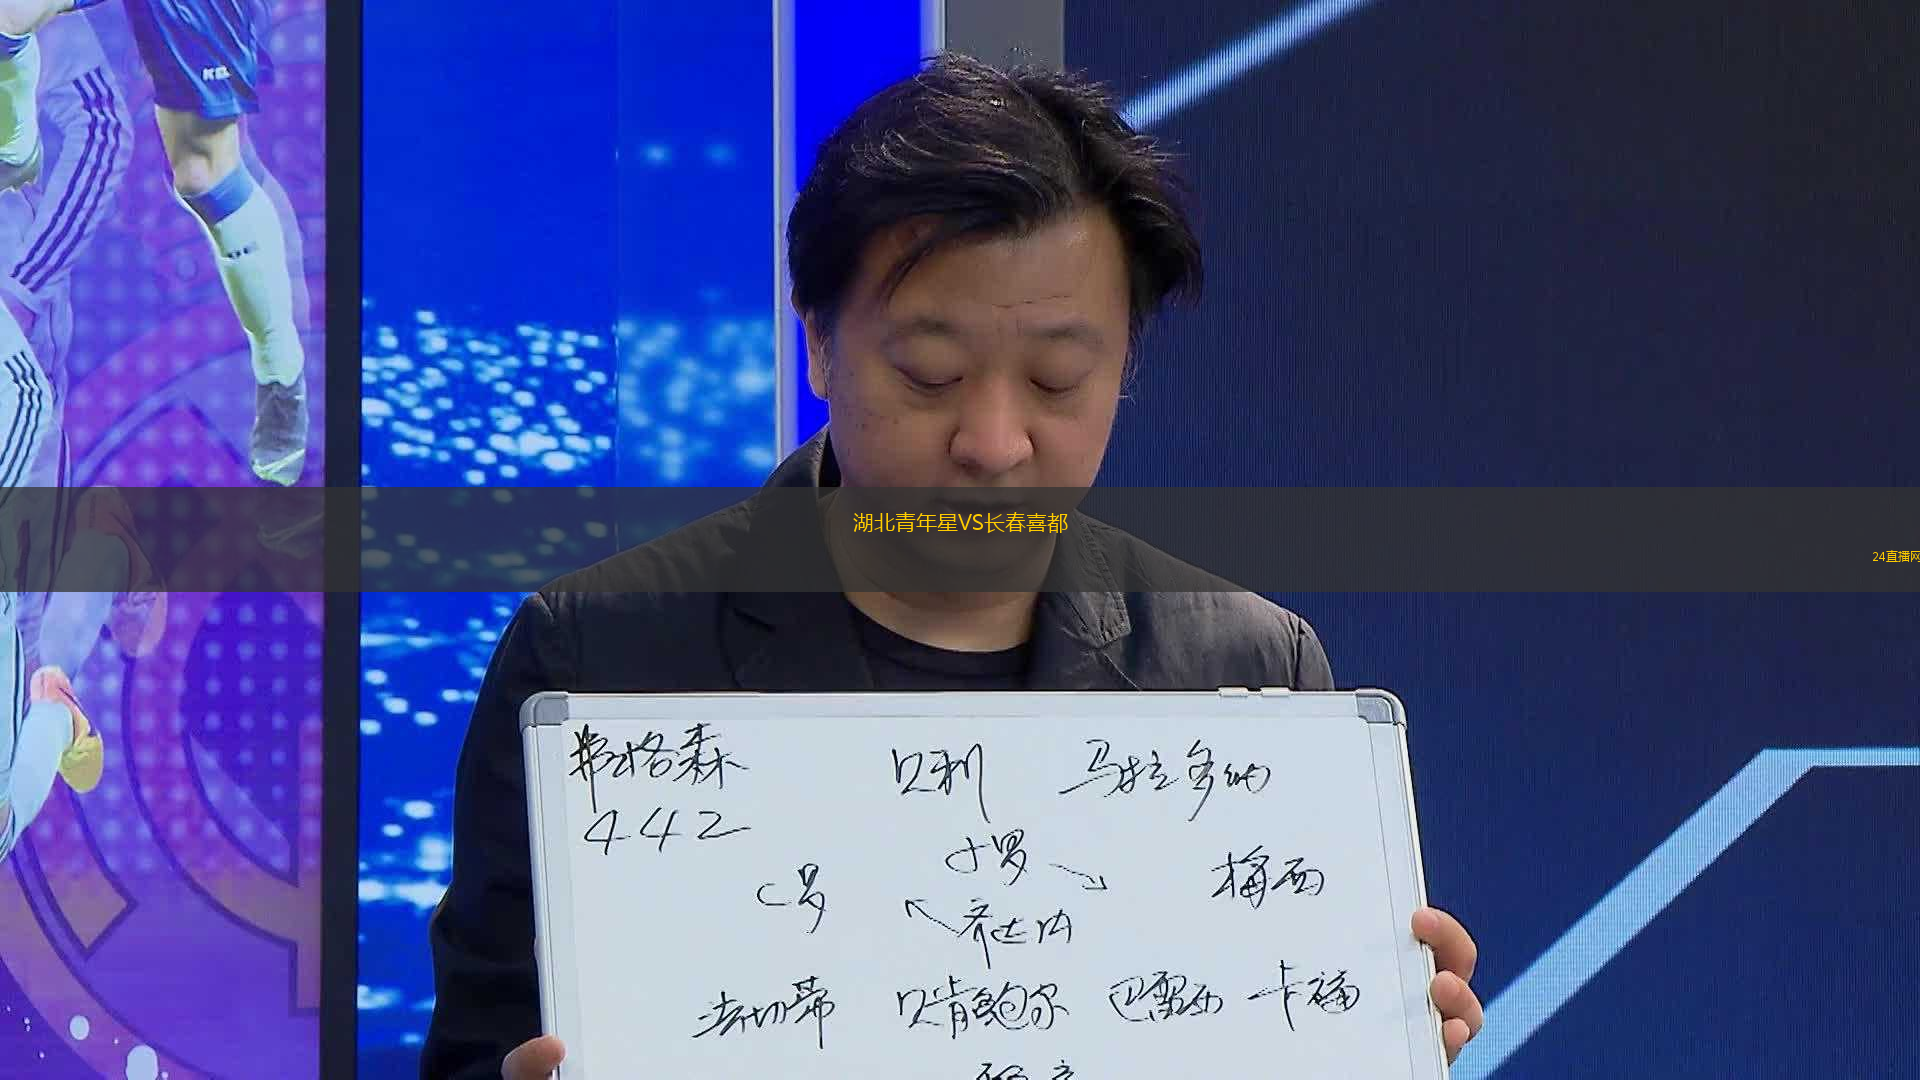 湖北青年星VS长春喜都
24直播网
弗格森 贝利 马拉多纳
442
小罗
C罗 梅西
齐达内
法切蒂 贝肯鲍尔 巴雷西 卡福